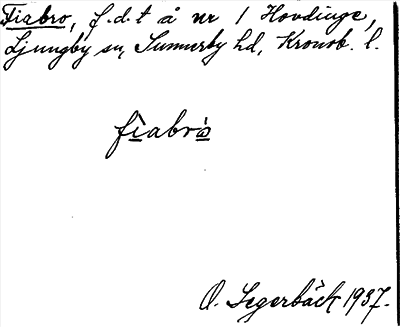 Fiabro, f.d.t å nr 1 Hovdinge,
Ljungby sn, Sunnerby hd, Kronob. l.
fiabrò
O. Segerbäck 1937.